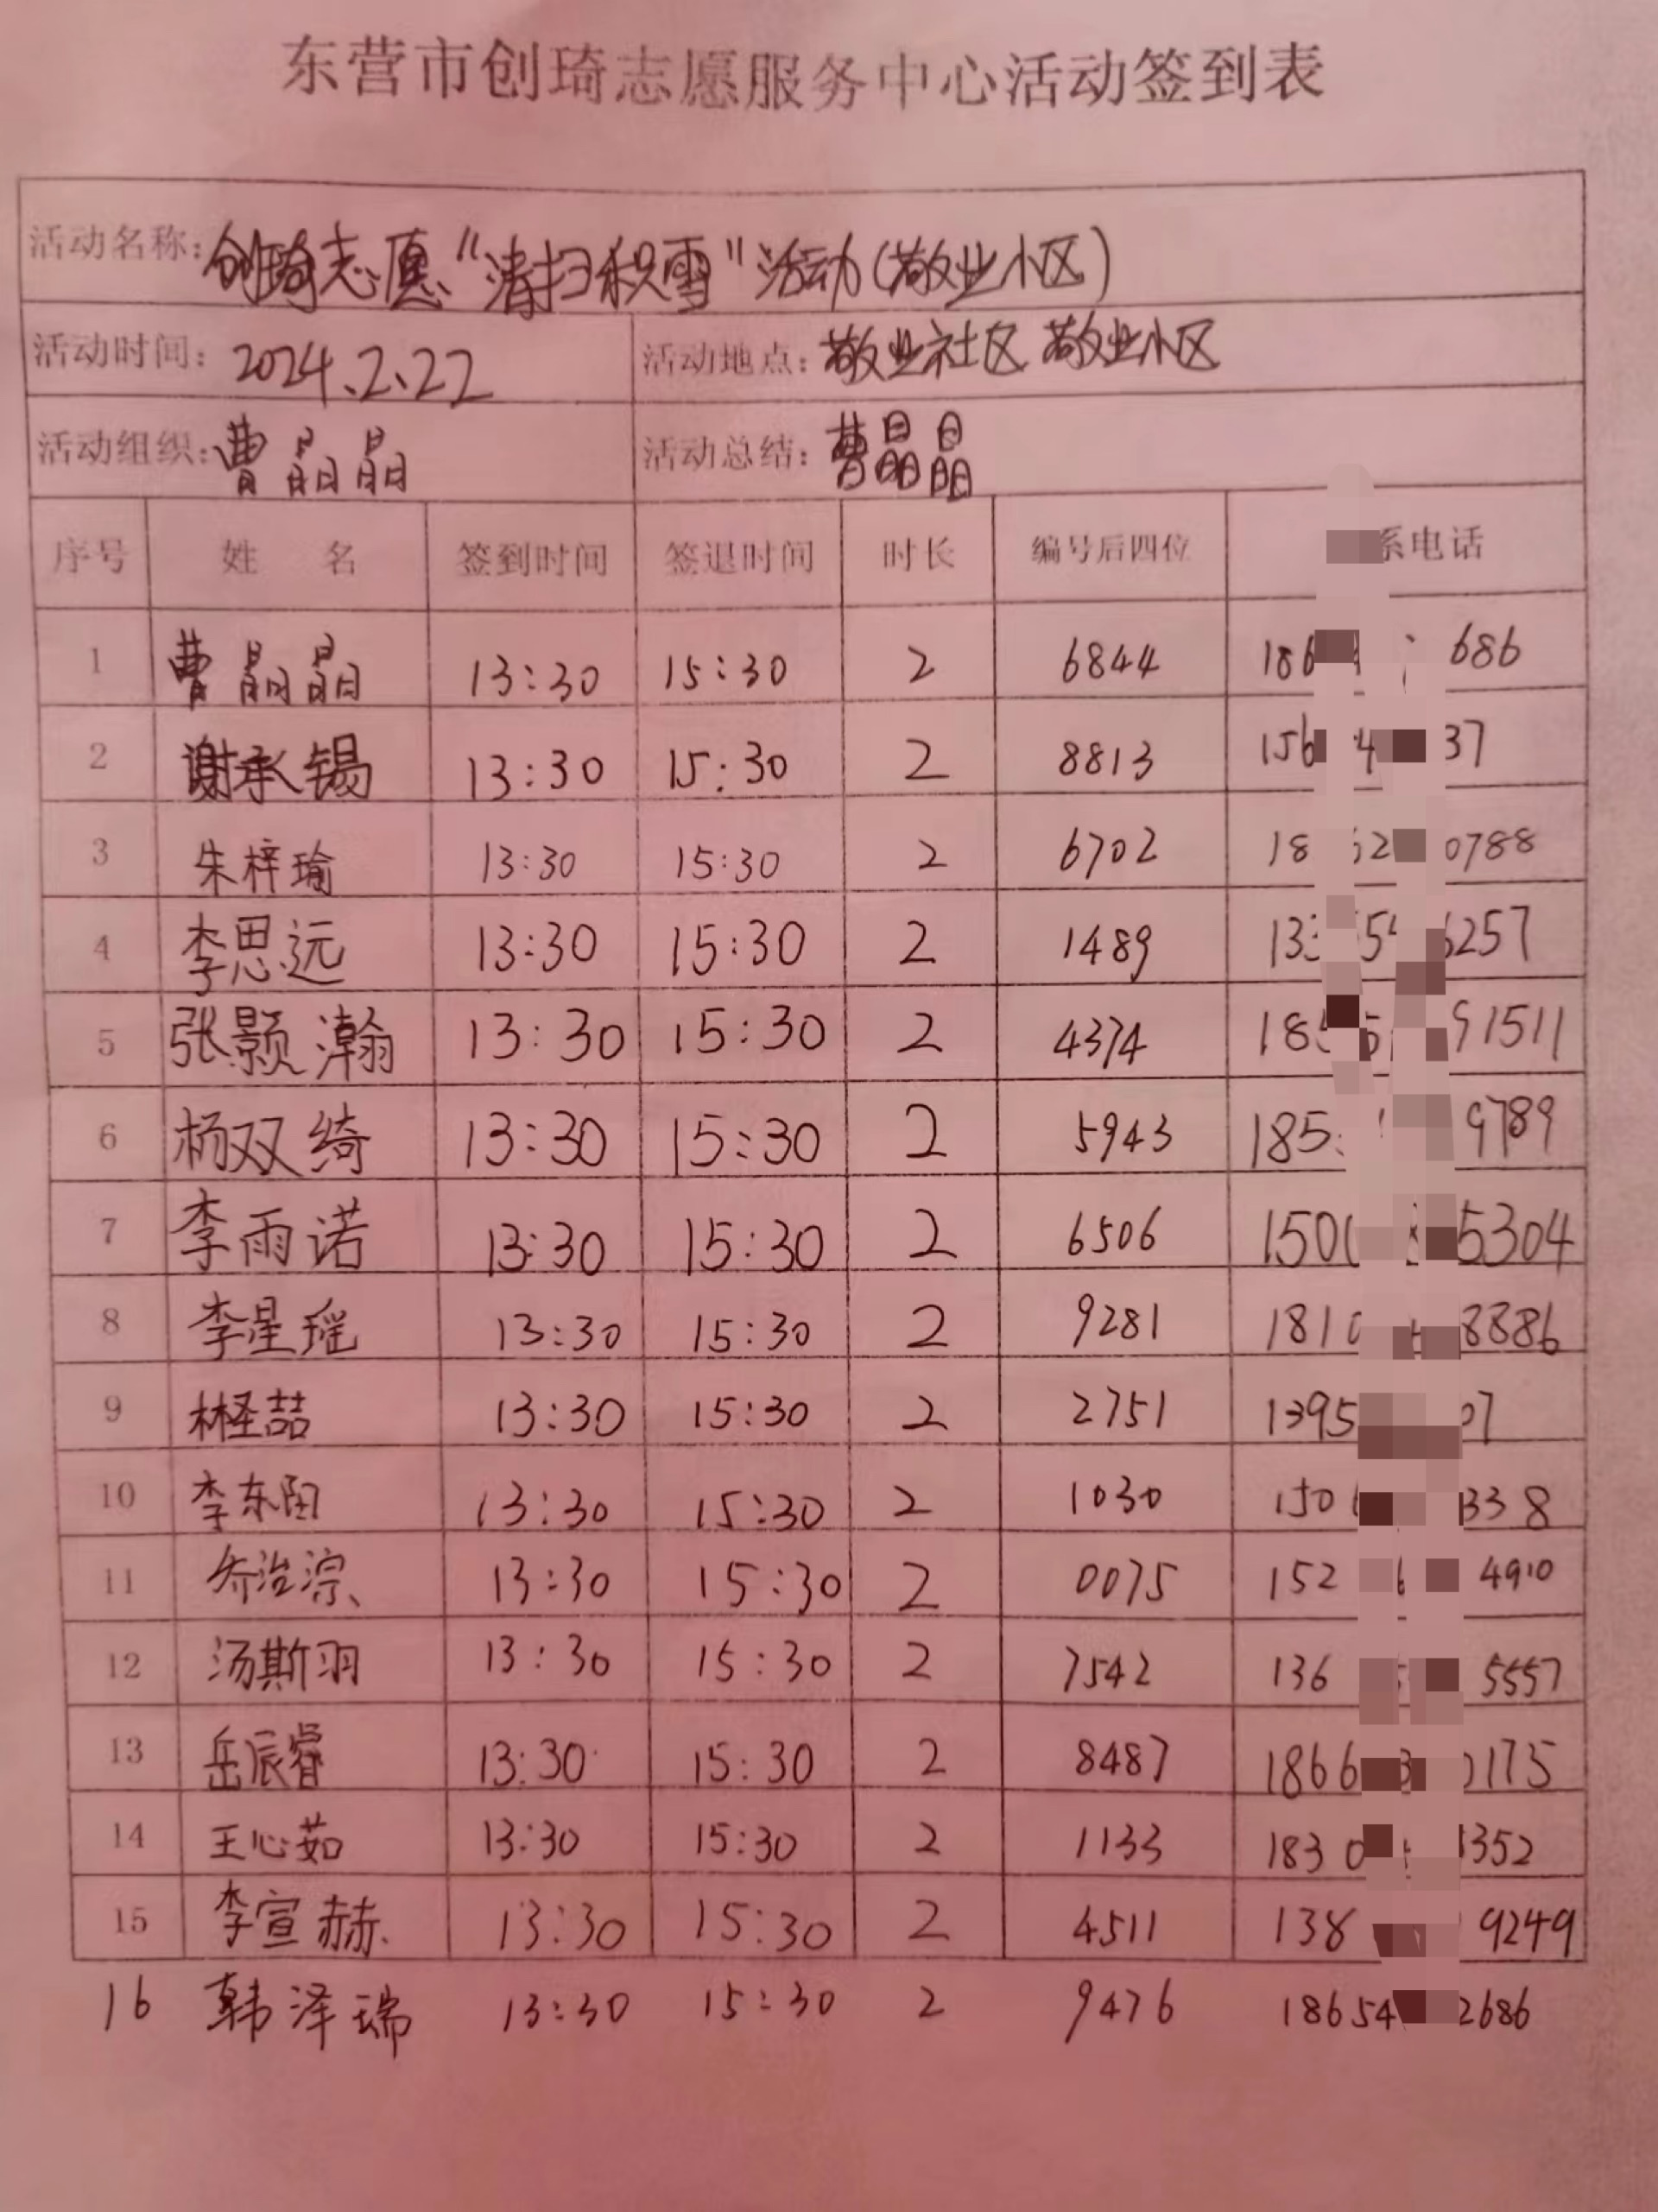 东营市创琦志愿服务中心活动签到表
活动名称：创琦志愿“清扫积雪”活动(敬业小区)
活动时间：2024.2.22 活动地点：敬业社区 敬业小区
活动组织：曹晶晶 活动总结：曹晶晶
序号 姓 名 签到时间 签退时间 时长 编号后四位 系电话
1 曹晶晶 13:30 15:30 2 6844 186 686
2 谢承锡 13:30 15:30 2 8813 156 4 37
3 朱梓瑜 13:30 15:30 2 6702 18 62 0788
4 李思远 13:30 15:30 2 1489 133 54 6257
5 张颢瀚 13:30 15:30 2 4374 185 91511
6 杨双绮 13:30 15:30 2 5943 185 9789
7 李雨诺 13:30 15:30 2 6506 150 5304
8 李星瑶 13:30 15:30 2 9281 181 8886
9 喆 13:30 15:30 2 2751 1395 07
10 李东阳 13:30 15:30 2 1030 150 338
11 乔治淙 13:30 15:30 2 0075 152 4910
12 汤斯羽 13:30 15:30 2 7542 136 5557
13 岳辰睿 13:30 15:30 2 8487 1866 3 0175
14 王心茹 13:30 15:30 2 1133 1830 352
15 李宣赫 13:30 15:30 2 4511 138 9249
16 韩泽瑞 13:30 15:30 2 9476 18654 2686